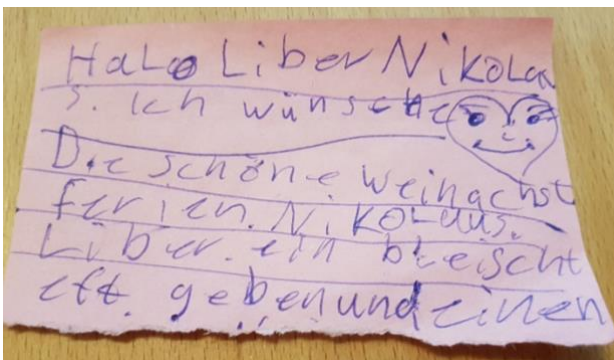 Halo Liber Nikolau
s. ich wünsche
Die schöne weinachst
ferien. Nikolaus.
Liber. ein bleischt
eft. geben und einen